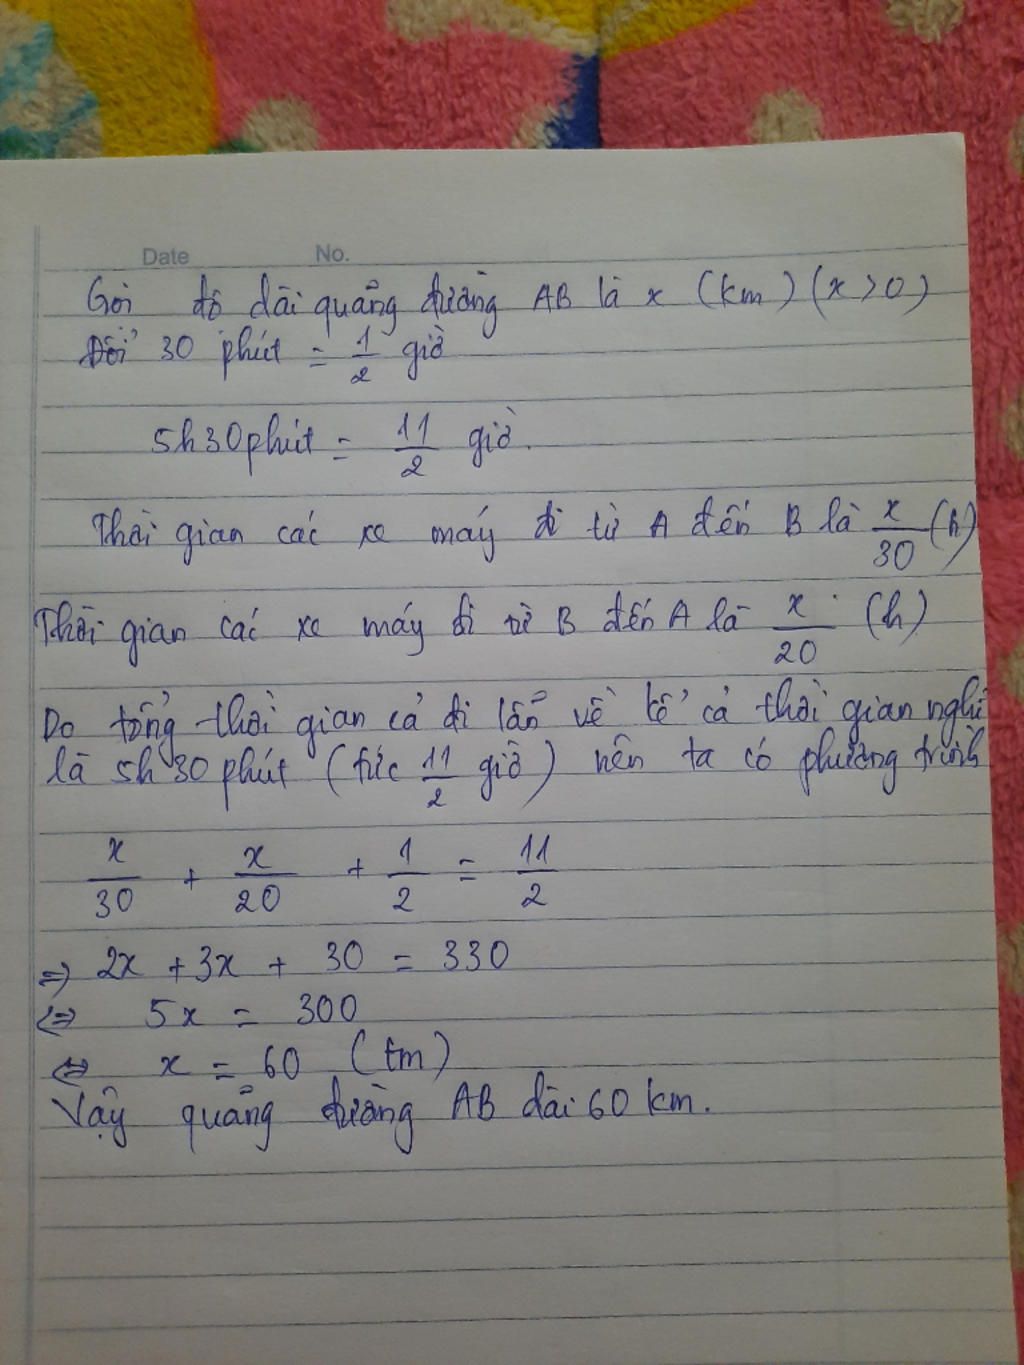 Date No.
Gọi độ dài quãng đường AB là x (km) (x>0)
Đổi 30 phút = 1/2 giờ
5h30phút = 11/2 giờ.
Thời gian các xe máy đi từ A đến B là x/30 (h)
Thời gian các xe máy đi từ B đến A là x/20 (h)
Do tổng thời gian cả đi lẫn về kể cả thời gian nghỉ
là 5h30phút (tức 11/2 giờ) nên ta có phương trình
x/30 + x/20 + 1/2 = 11/2
=> 2x + 3x + 30 = 330
<=> 5x = 300
<=> x = 60 (tm)
Vậy quãng đường AB dài 60 km.